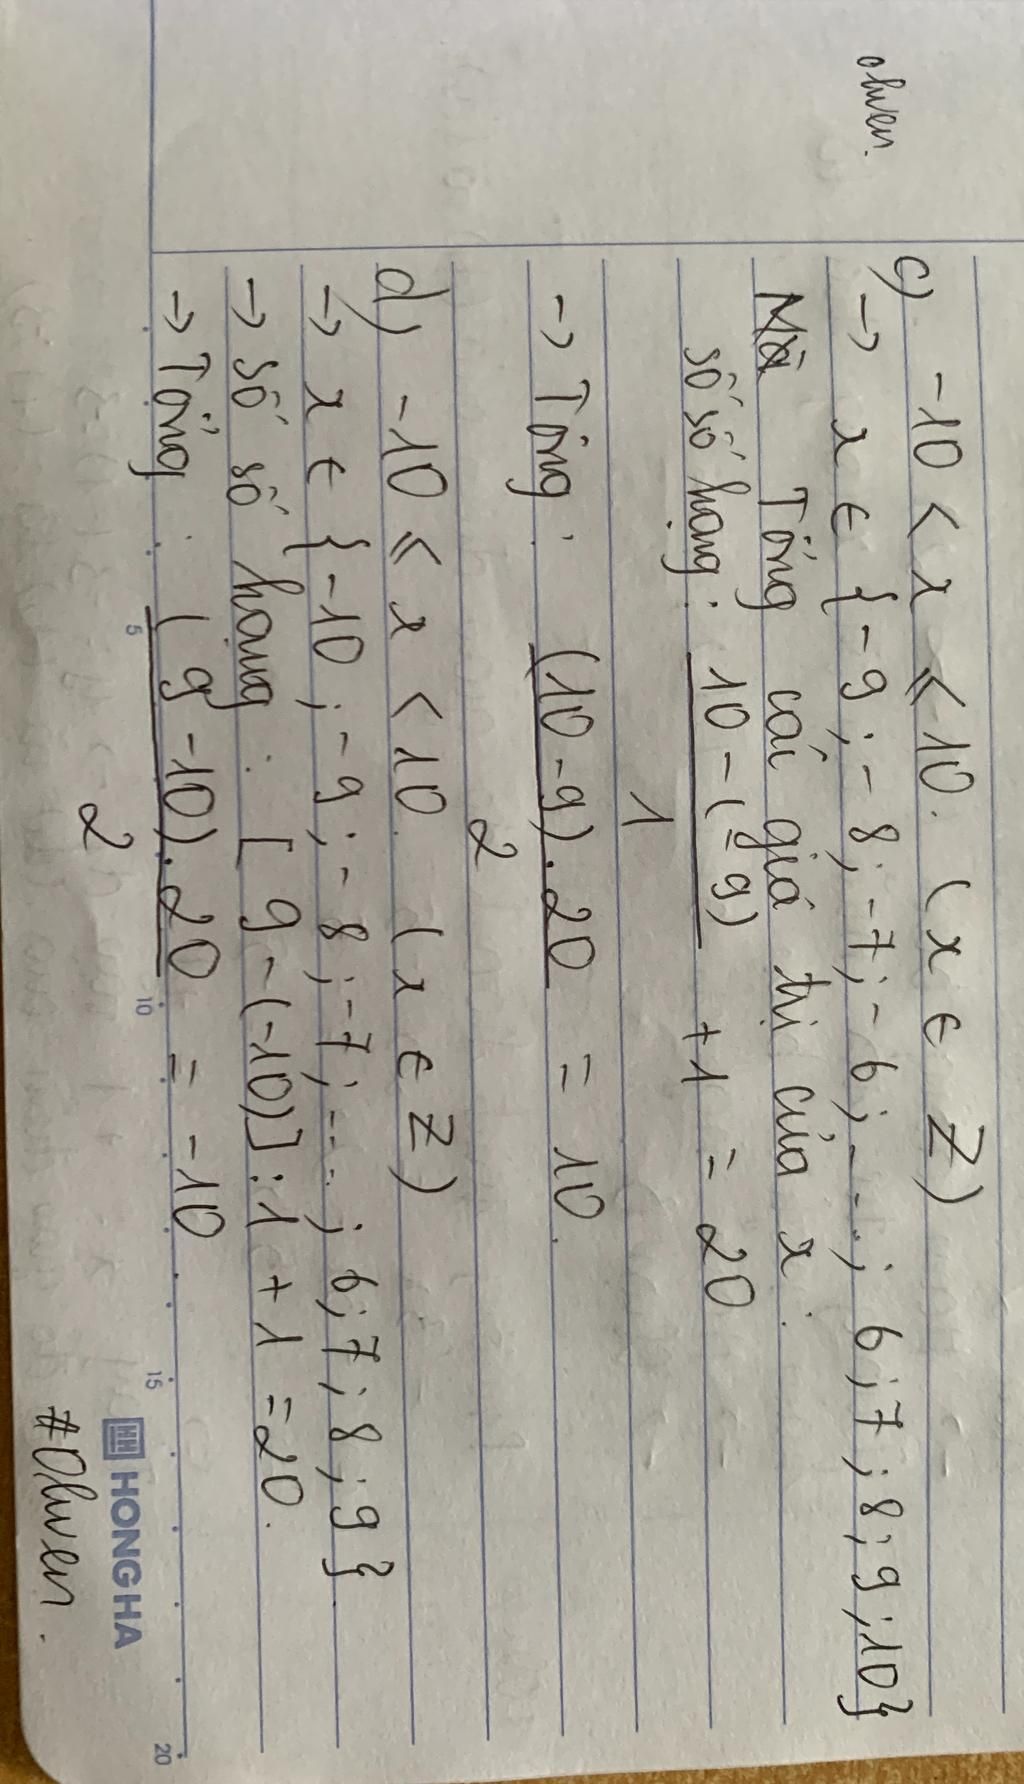 chven.
c) -10 < x ⩽ 10. (x ∈ Z)
→ x ∈ {-9; -8; -7; -6; ...; 6; 7; 8; 9; 10}
Tổng cái giá trị của x:
số số hạng: 10 - (-9) + 1 = 20
1
→ Tổng: (10 - 9). 20 = 10.
2
d) -10 ⩽ x < 10. (x ∈ Z)
→ x ∈ {-10; -9; -8; -7; ...; 6; 7; 8; 9}
→ số số hạng: [9 - (-10)] : 1 + 1 = 20.
→ Tổng: (9 - 10). 20 = -10
2
5 10 15 20
HH HONG HA